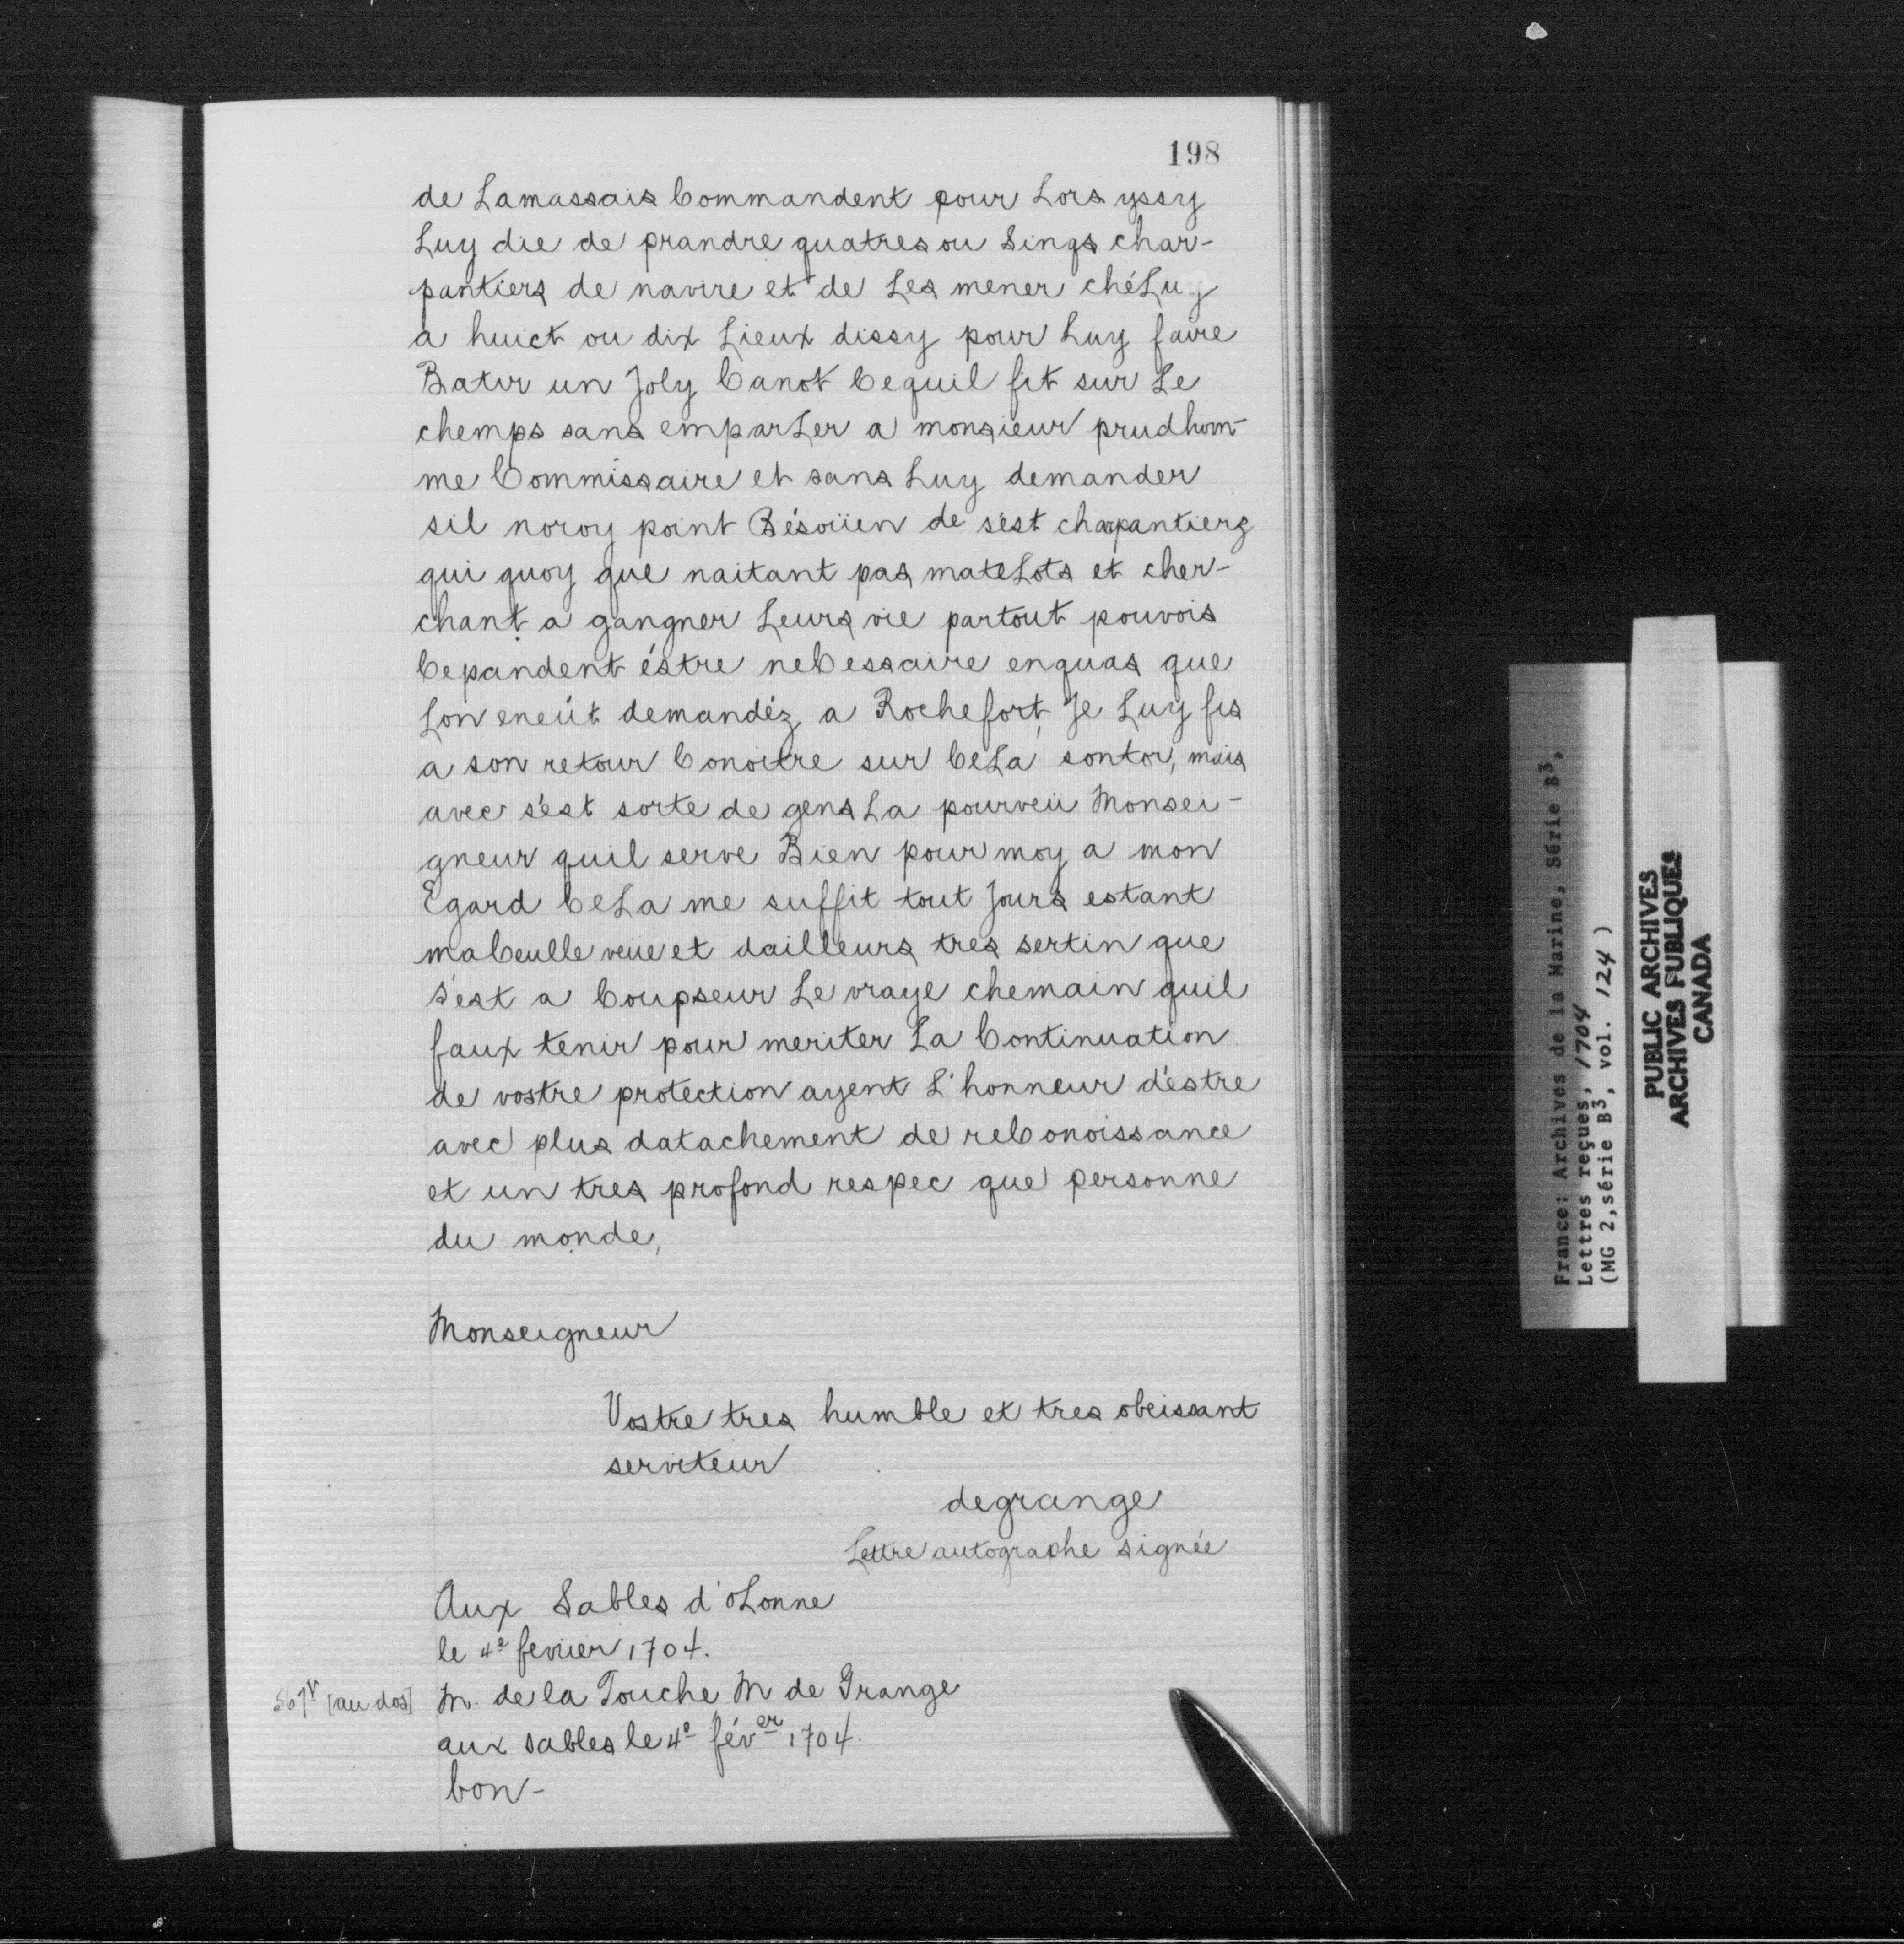 198
de Lamassais Commandent pour Lors yssy
Luy die de prandre quatres ou Sinqs char-
pantiers de navire et de Les mener chéLuy
a huict ou dix Lieux dissy pour Luy faire
Batir un Joly Canot Cequil fit sur Le
chemps sans emparLer a monsieur prudhom-
me Commissaire et sans Luy demander
sil noroy point Bésoüen de sést charpantiers
qui quoy que naitant pas mateLots et cher-
chant a gangner Leurs vie partout pouvois
Cepandent éstre neCessaire enquas que
Lon eneút demandéz a Rochefort, Je Luy fis
a son retour Conoitre sur CeLa sontor, mais
avec sést sorte de gens La pourveü Monsei-
gneur quil serve Bien pour moy a mon
Egard CeLa me suffit tout Jours estant
maCeulle veue et dailleurs tres sertin que
s'est a Coupseur Le vraye chemain quil
faux tenir pour meriter La Continuation
de vostre protection ayent L'honneur déstre
avec plus datachement de reConoissance
et un tres profond respec que personne
du monde,
Monseigneur
Vostre tres humble et tres obeissant
serviteur
degrange
Lettre autographe signée
Aux Sables d'oLonne
le 4e fevrier 1704.
567v [au dos] M. de la Touche M de Grange
aux sables le 4e féver 1704.
bon-
France: Archives de la Marine, Série B3,
Lettres reçues, 1704
(MG 2, série B3, vol. 124)
PUBLIC ARCHIVES
ARCHIVES PUBLIQUES
CANADA